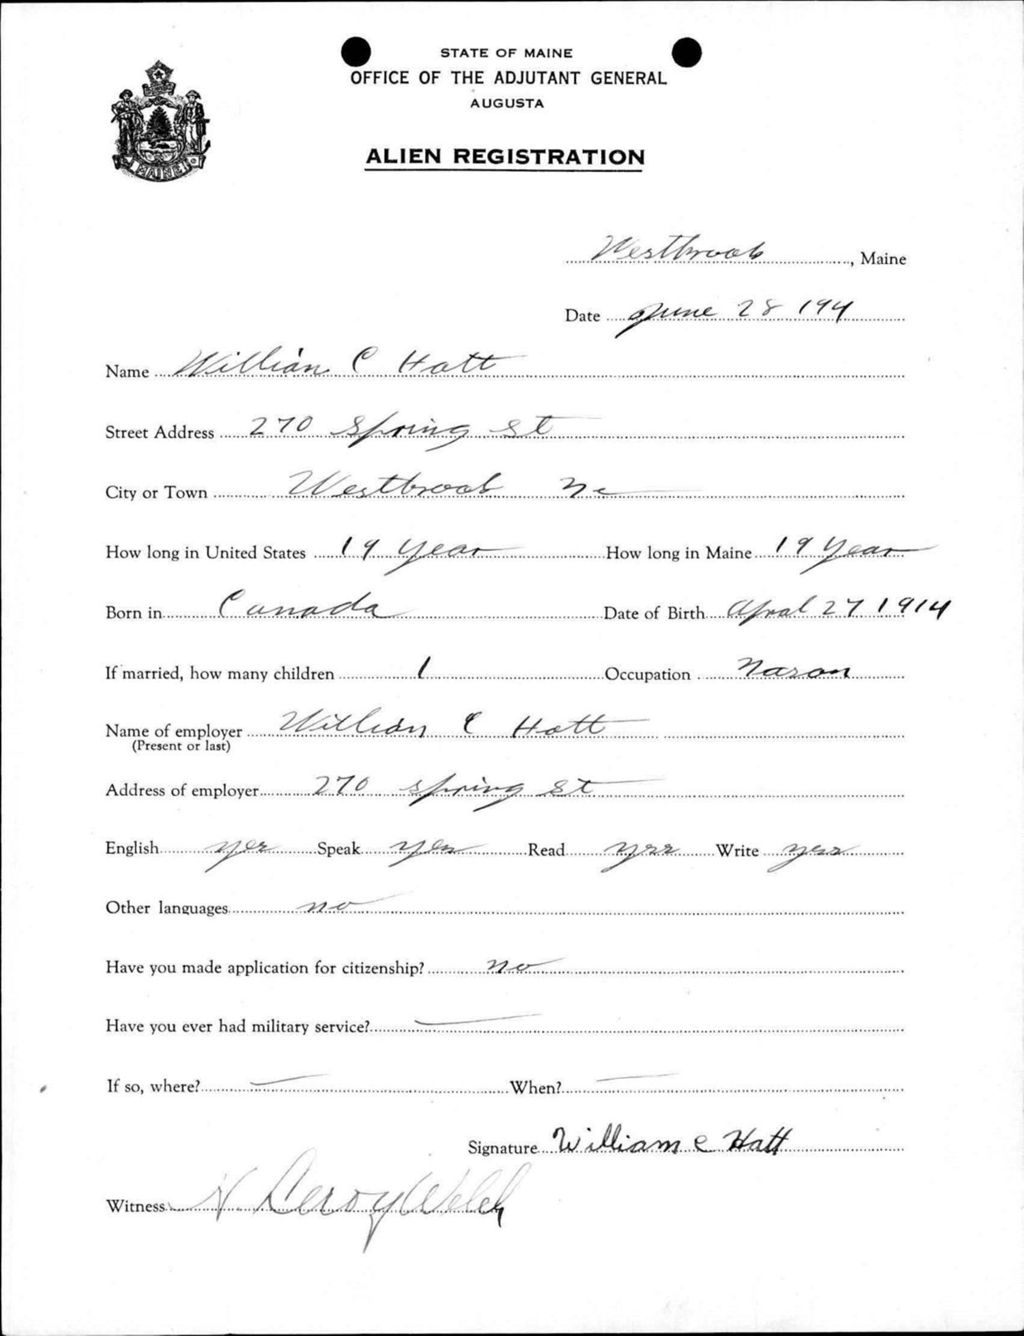 STATE OF MAINE
OFFICE OF THE ADJUTANT GENERAL
AUGUSTA
ALIEN REGISTRATION
MAINE
Westbrook, Maine
Date June 28 194
Name William C Hatt
Street Address 270 Spring St
City or Town Westbrook Me
How long in United States 19 Year How long in Maine 19 Year
Born in Canada Date of Birth April 27 1914
If married, how many children 1 Occupation Mason
Name of employer William C Hatt
(Present or last)
Address of employer 270 Spring St
English yes Speak yes Read yes Write yes
Other languages no
Have you made application for citizenship? no
Have you ever had military service? —
If so, where? — When? —
Signature William C Hatt
Witness N. Leroy Welch